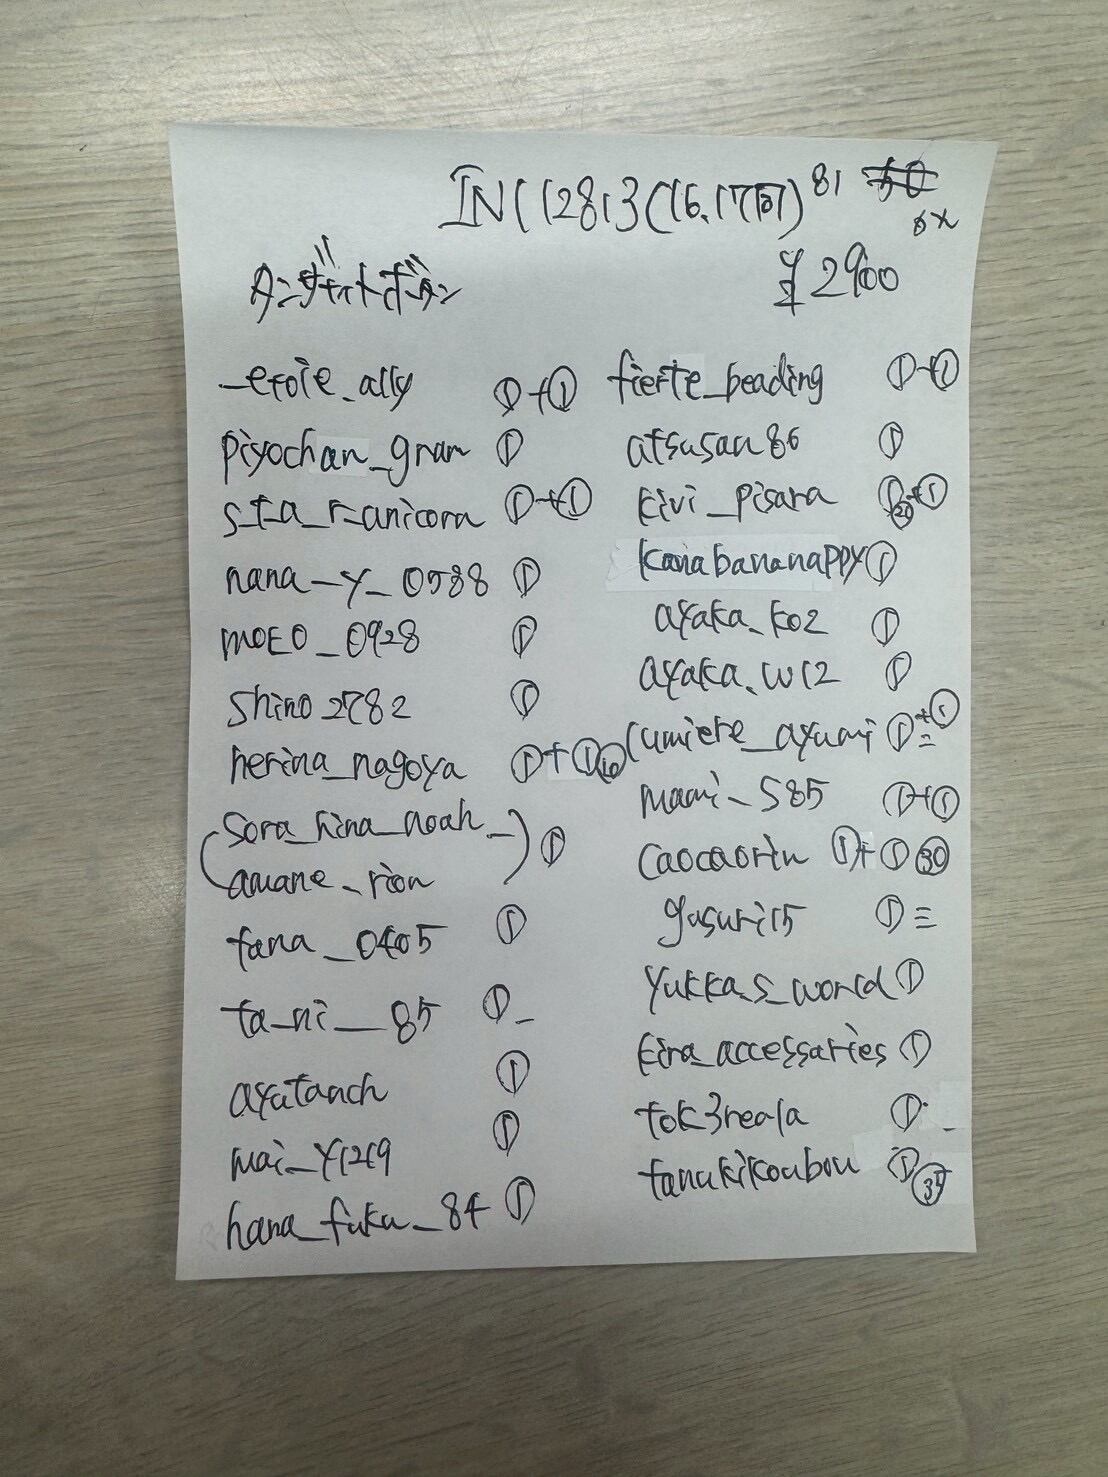 IN((2813(16.17同) 81
¥2900
-etoie_ally ①+①
piyochan_gram ①
s_t_a_r_anicorn ①+①
nana-y_0588 ①
moeo_0928 ①
shino2782 ①
herina_nagoya ①+①⑩
(sora_hina_noah_
amane_rion) ①
tana_0405 ①
ta_ni__85 ①
ayutanch ①
mai_y1219 ①
hana_fuku_84 ①
fierte_beading ①+①
atsusan86 ①
kivi_pisara ①+① ⑳
kanabananappy ①
ayaka_ko2 ①
ayaka.w12 ①
lumiere_ayumi ①+①
mami_585 ①+①
caocaorin ①+① ㉚
yusuri15 ①
yukka.s_world ①
kira_accessaries ①
tok3reala ①
tanukikoubou ①